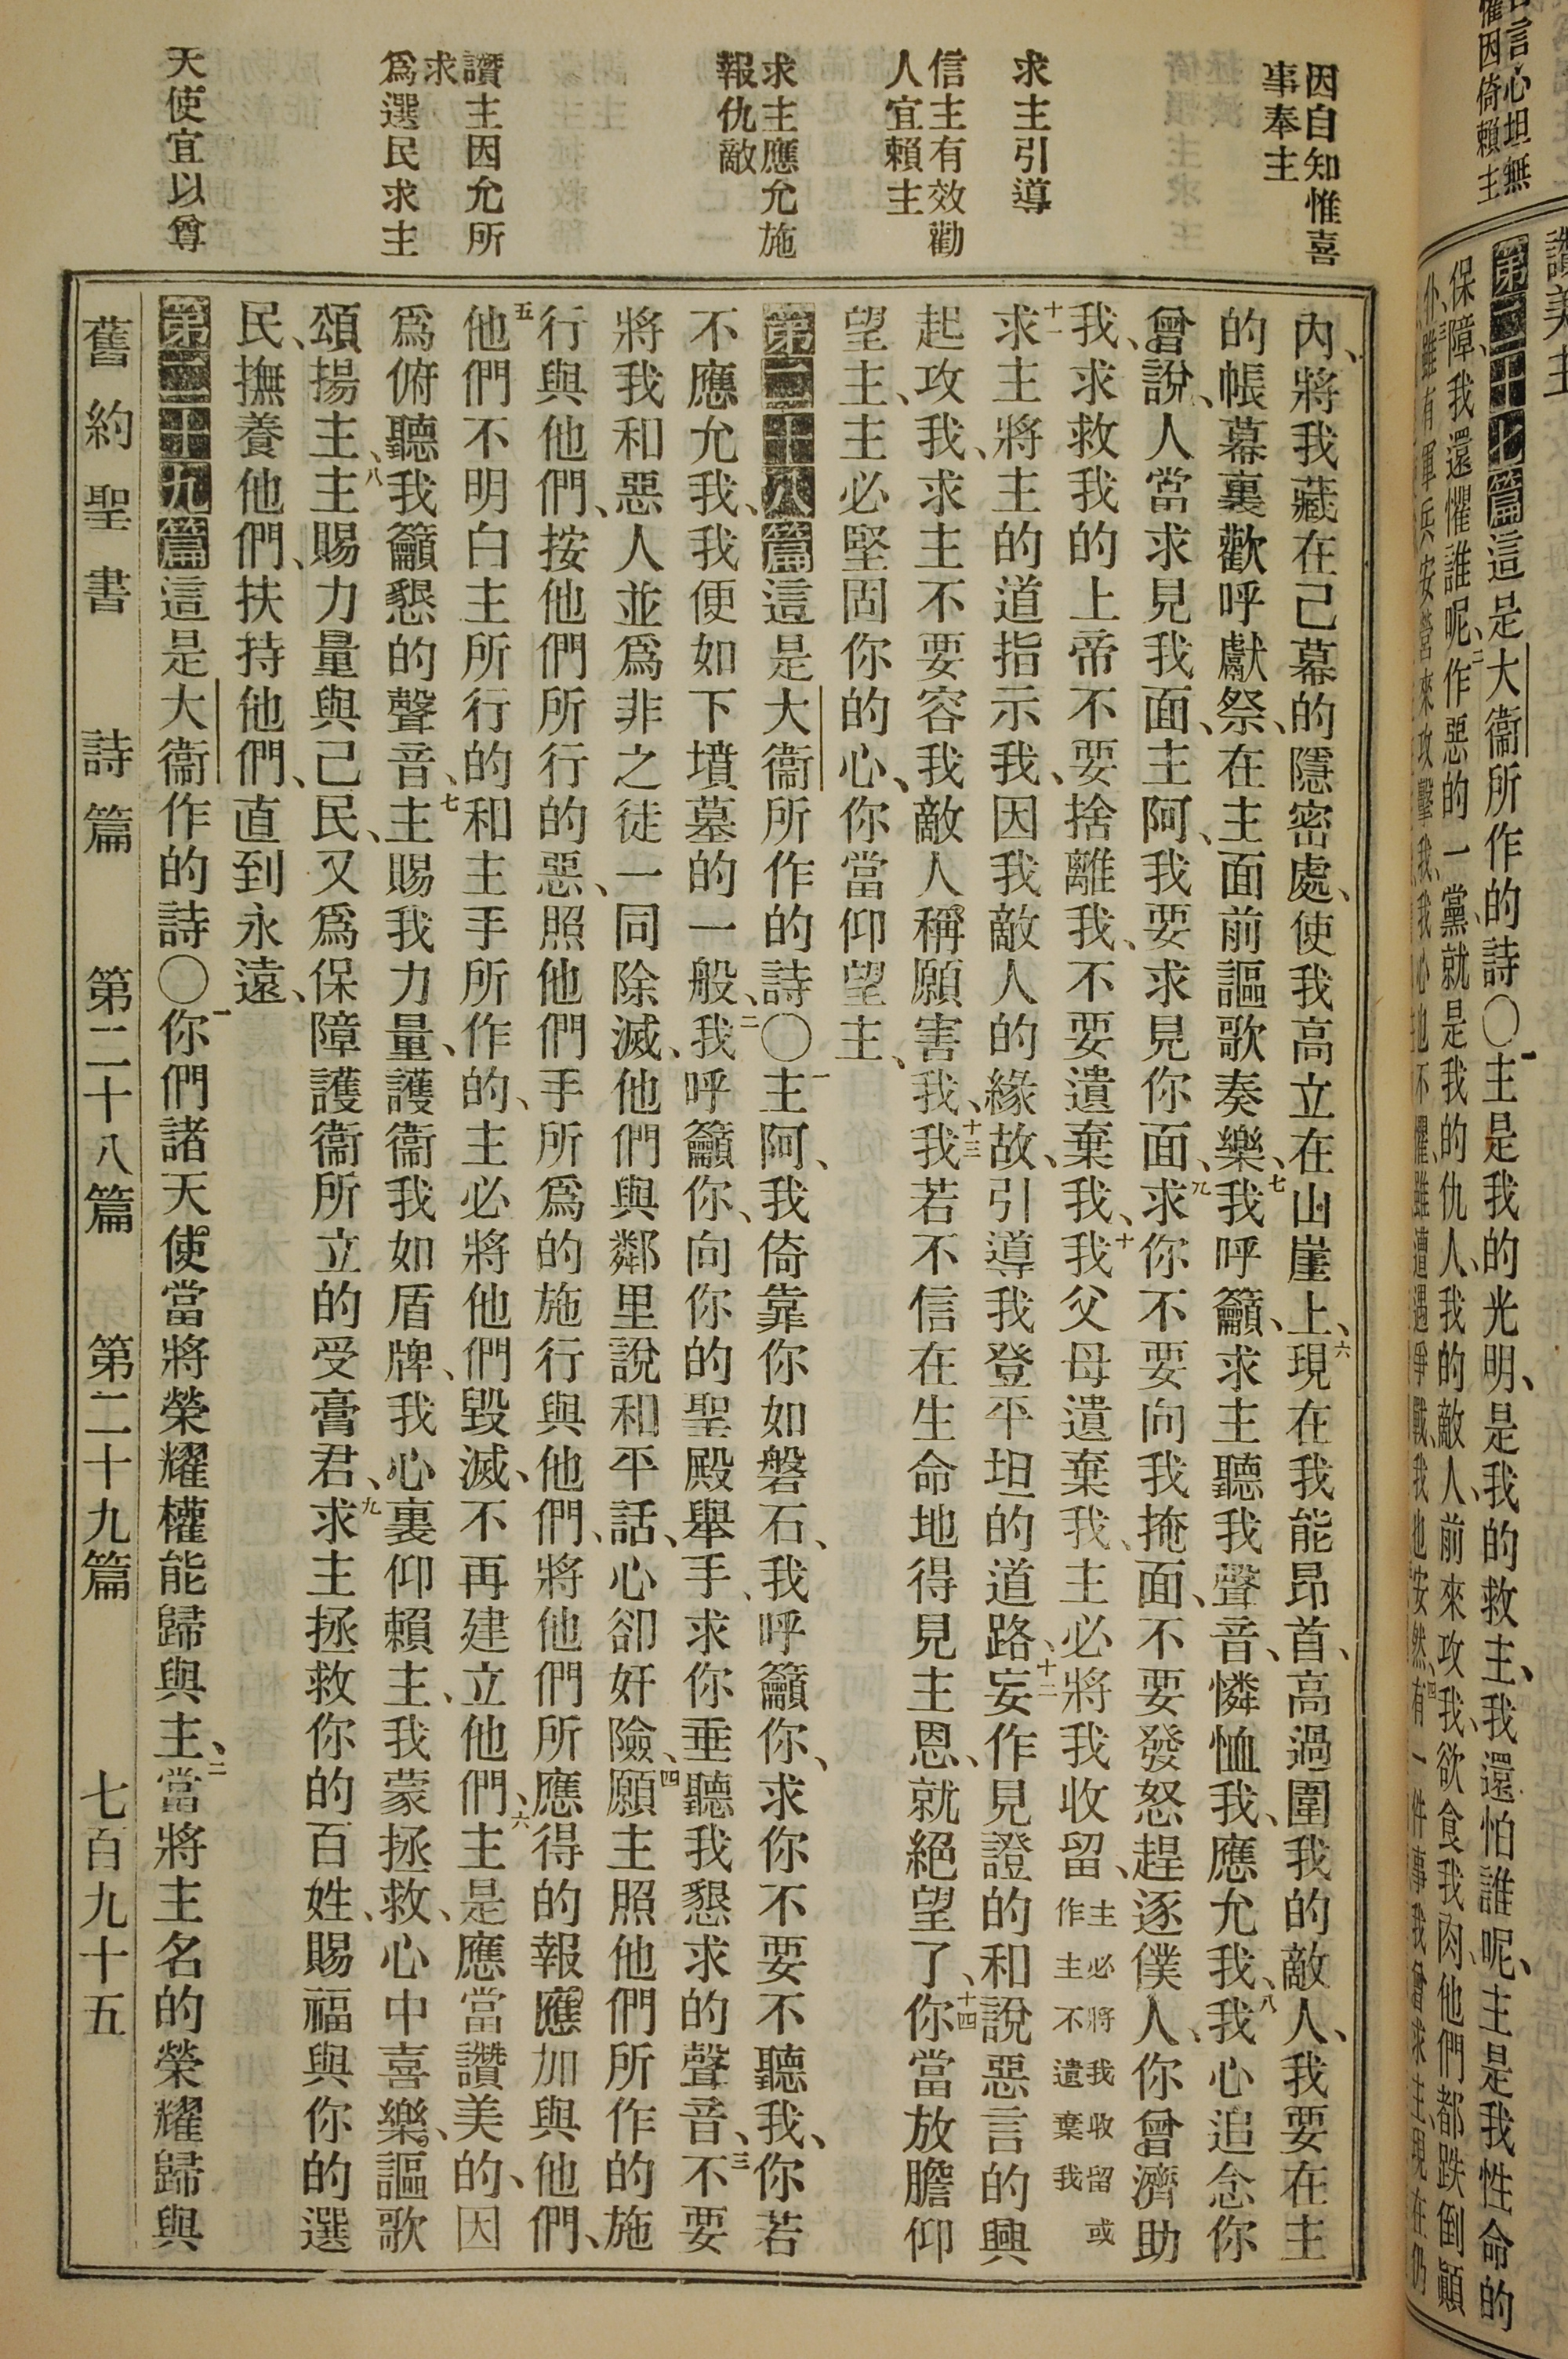 讚美主
第二十七篇這是大衞所作的詩〇一主是我的光明、是我的救主、我還怕誰呢、主是我性命的
保障、我還懼誰呢、二作惡的一黨、就是我的仇人、我的敵人、前來攻我、欲食我肉、他們都跌倒顚
因自知惟喜
事奉主
求主引導
信主有效勸
人宜賴主
求主應允施
報仇敵
讚主因允所
求
爲選民求主
天使宜以尊
內、將我藏在己幕的隱密處、使我高立在山崖上、六現在我能昂首、高過圍我的敵人、我要在主
的帳幕裏歡呼獻祭、在主面前謳歌奏樂、七我呼籲、求主聽我聲音、憐恤我、應允我、八我心追念你
曾說、人當求見我面、主阿、我要求見你面、九求你不要向我掩面、不要發怒趕逐僕人、你曾濟助
我、求救我的上帝不要捨離我、不要遺棄我、十我父母遺棄我、主必將我收留、主必將我收留或作主不遺棄我
十一求主將主的道指示我、因我敵人的緣故、引導我登平坦的道路、十二妄作見證的和說惡言的興
起攻我、求主不要容我敵人稱願害我、十三我若不信在生命地得見主恩、就絕望了、十四你當放膽仰
望主、主必堅固你的心、你當仰望主、
第二十八篇這是大衞所作的詩〇一主阿、我倚靠你如磐石、我呼籲你、求你不要不聽我、你若
不應允我、我便如下墳墓的一般、二我呼籲你、向你的聖殿舉手、求你垂聽我懇求的聲音、三不要
將我和惡人並爲非之徒一同除滅、他們與鄰里說和平話、心卻奸險、四願主照他們所作的施
行與他們、按他們所行的惡、照他們手所爲的施行與他們、將他們所應得的報應加與他們、
五他們不明白主所行的和主手所作的、主必將他們毀滅、不再建立他們、六主是應當讚美的、因
爲俯聽我籲懇的聲音、七主賜我力量、護衞我如盾牌、我心裏仰賴主、我蒙拯救、心中喜樂、謳歌
頌揚主、八主賜力量與己民、又爲保障護衞所立的受膏君、九求主拯救你的百姓、賜福與你的選
民、撫養他們、扶持他們、直到永遠、
第二十九篇這是大衞作的詩〇一你們諸天使、當將榮耀權能歸與主、二當將主名的榮耀歸與
舊約聖書　詩篇　第二十八篇　第二十九篇　七百九十五